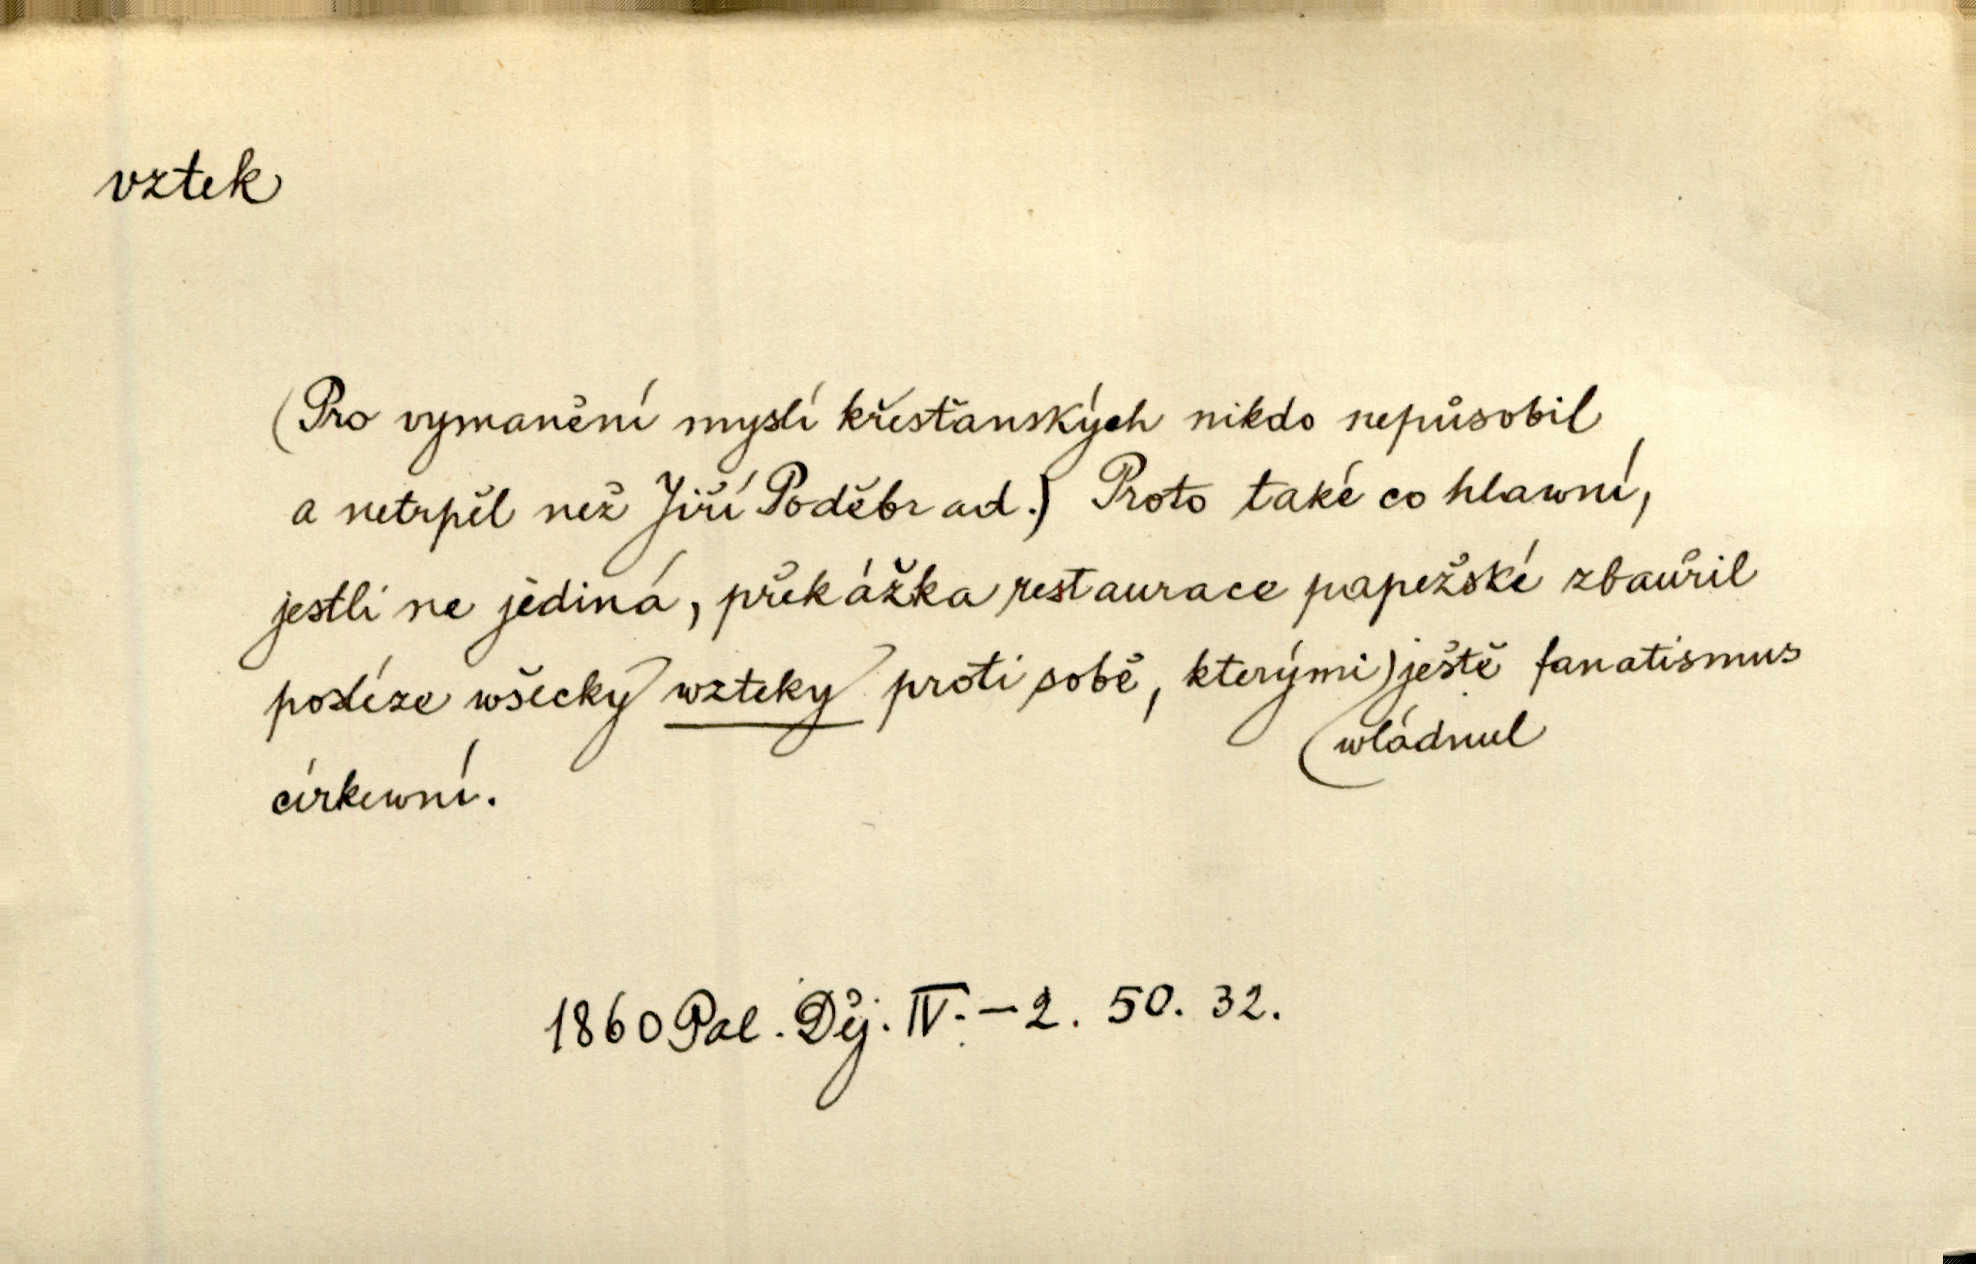 vztek
(Pro vymanění myslí křesťanských nikdo nepůsobil
a netrpěl než Jiří Poděbrad.) Proto také co hlawní,
jestli ne jediná, překážka restaurace papežské zbauřil
posléze wšecky wzteky proti sobě, kterými ještě fanatismus
wládnul
církewní.
1860 Pal. Děj. IV. - 2. 50. 32.